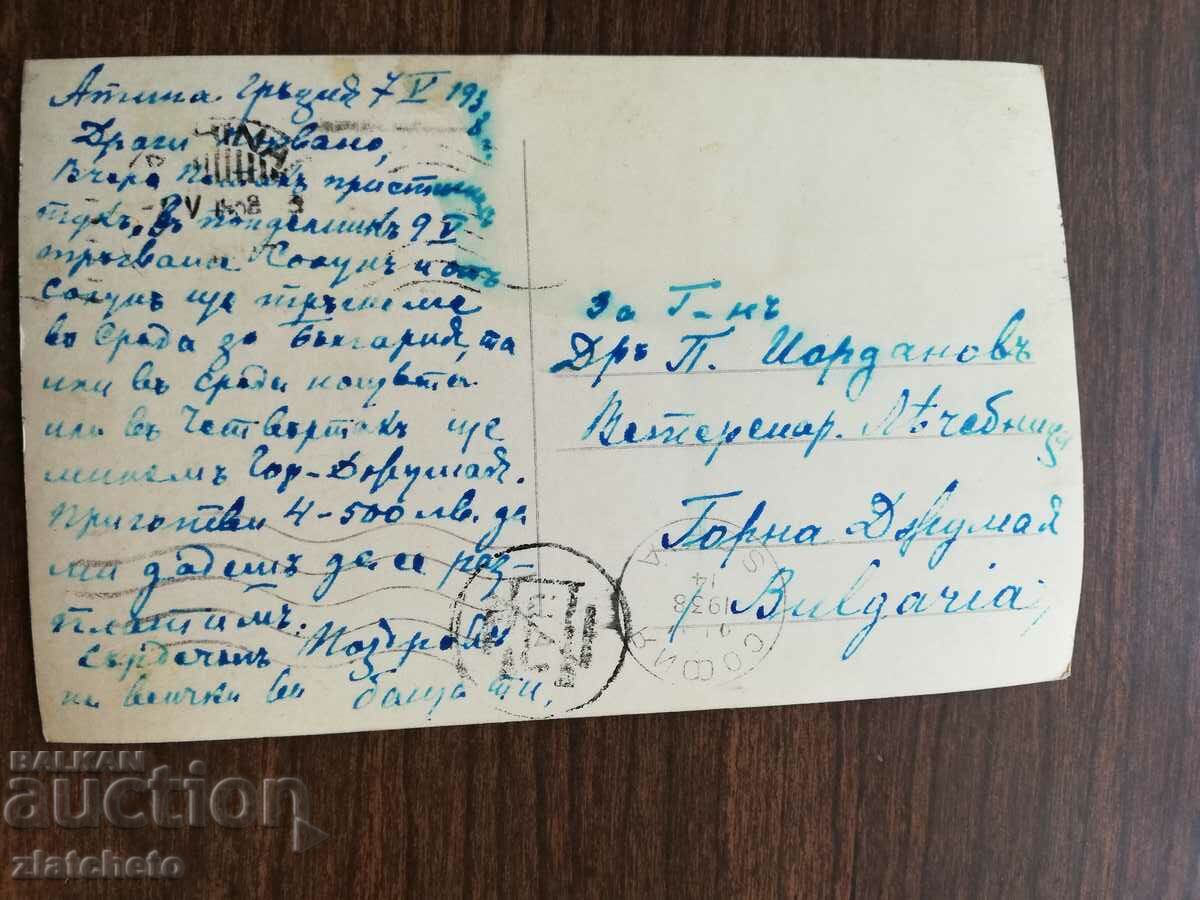 Атина Гръция 7 V 1938 г.
Драги Първане,
Вчера пристигнахъ
тукъ, въ понделникъ 9 V
тръгваме Солунъ и отъ
Солунъ ще тръгнеме
въ Среда за България, та
или въ Среда нощьта
или въ Четвъртакъ ще
минемъ Гор-Джумая.
Приготви 4-500 лв. да
ми дадешъ да се раз-
платимъ.
Сърдеченъ Поздравъ
на всички ви баща ти,
За Г-нъ
Дръ П. Иордановъ
Ветеренар. Лѣчебница
Горна Джумая
/ Bulgaria /
SOFIA
СОФИЯ
14
1938
BALKAN
auction
zlatcheto